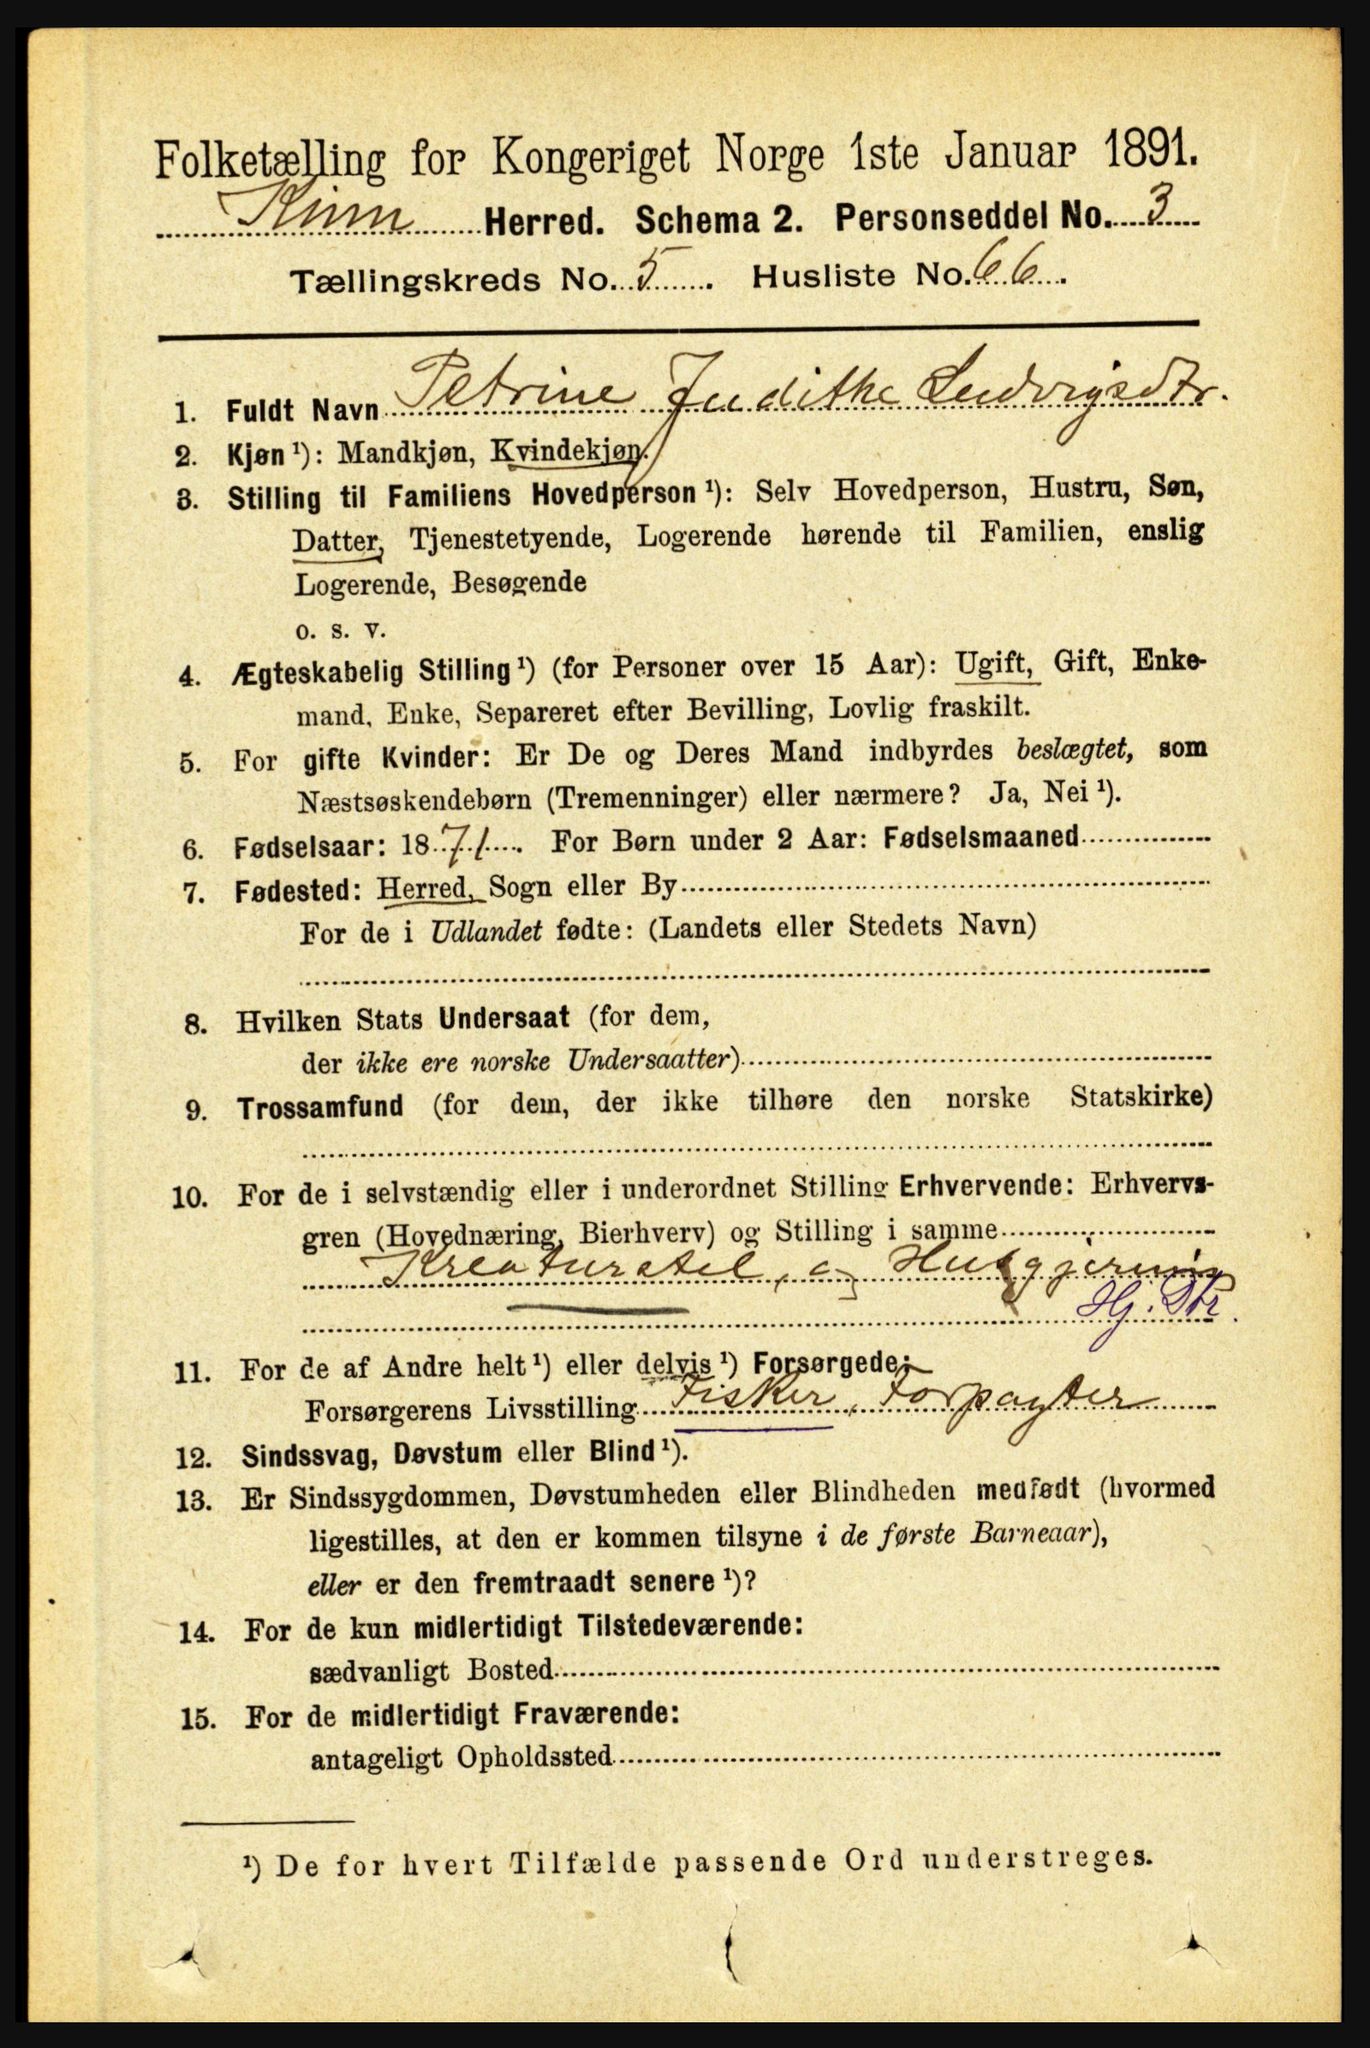 Folketælling for Kongeriget Norge 1ste Januar 1891.
Kinn Herred. Schema 2. Personseddel No. 3
Tællingskreds No. 5. Husliste No. 66.
1. Fuldt Navn Petrine Judithe Ludvigsdtr.
2. Kjøn ¹): Mandkjøn, Kvindekjøn.
3. Stilling til Familiens Hovedperson ¹): Selv Hovedperson, Hustru, Søn,
Datter, Tjenestetyende, Logerende hørende til Familien, enslig
Logerende, Besøgende
o. s. v.
4. Ægteskabelig Stilling ¹) (for Personer over 15 Aar): Ugift, Gift, Enke-
mand, Enke, Separeret efter Bevilling, Lovlig fraskilt.
5. For gifte Kvinder: Er De og Deres Mand indbyrdes beslægtet, som
Næstsøskendebørn (Tremenninger) eller nærmere? Ja, Nei ¹).
6. Fødselsaar: 1871. For Børn under 2 Aar: Fødselsmaaned
7. Fødested: Herred, Sogn eller By
For de i Udlandet fødte: (Landets eller Stedets Navn)
8. Hvilken Stats Undersaat (for dem,
der ikke ere norske Undersaatter)
9. Trossamfund (for dem, der ikke tilhøre den norske Statskirke)
10. For de i selvstændig eller i underordnet Stilling Erhvervende: Erhvervs-
gren (Hovednæring, Bierhverv) og Stilling i samme
Kreaturstel, og Husgjerning
Hj. Dtr.
11. For de af Andre helt ¹) eller delvis ¹) Forsørgede:
Forsørgerens Livsstilling Fisker, Forpagter
12. Sindssvag, Døvstum eller Blind ¹).
13. Er Sindssygdommen, Døvstumheden eller Blindheden medfødt (hvormed
ligestilles, at den er kommen tilsyne i de første Barneaar),
eller er den fremtraadt senere ¹)?
14. For de kun midlertidigt Tilstedeværende:
sædvanligt Bosted
15. For de midlertidigt Fraværende:
antageligt Opholdssted
¹) De for hvert Tilfælde passende Ord understreges.